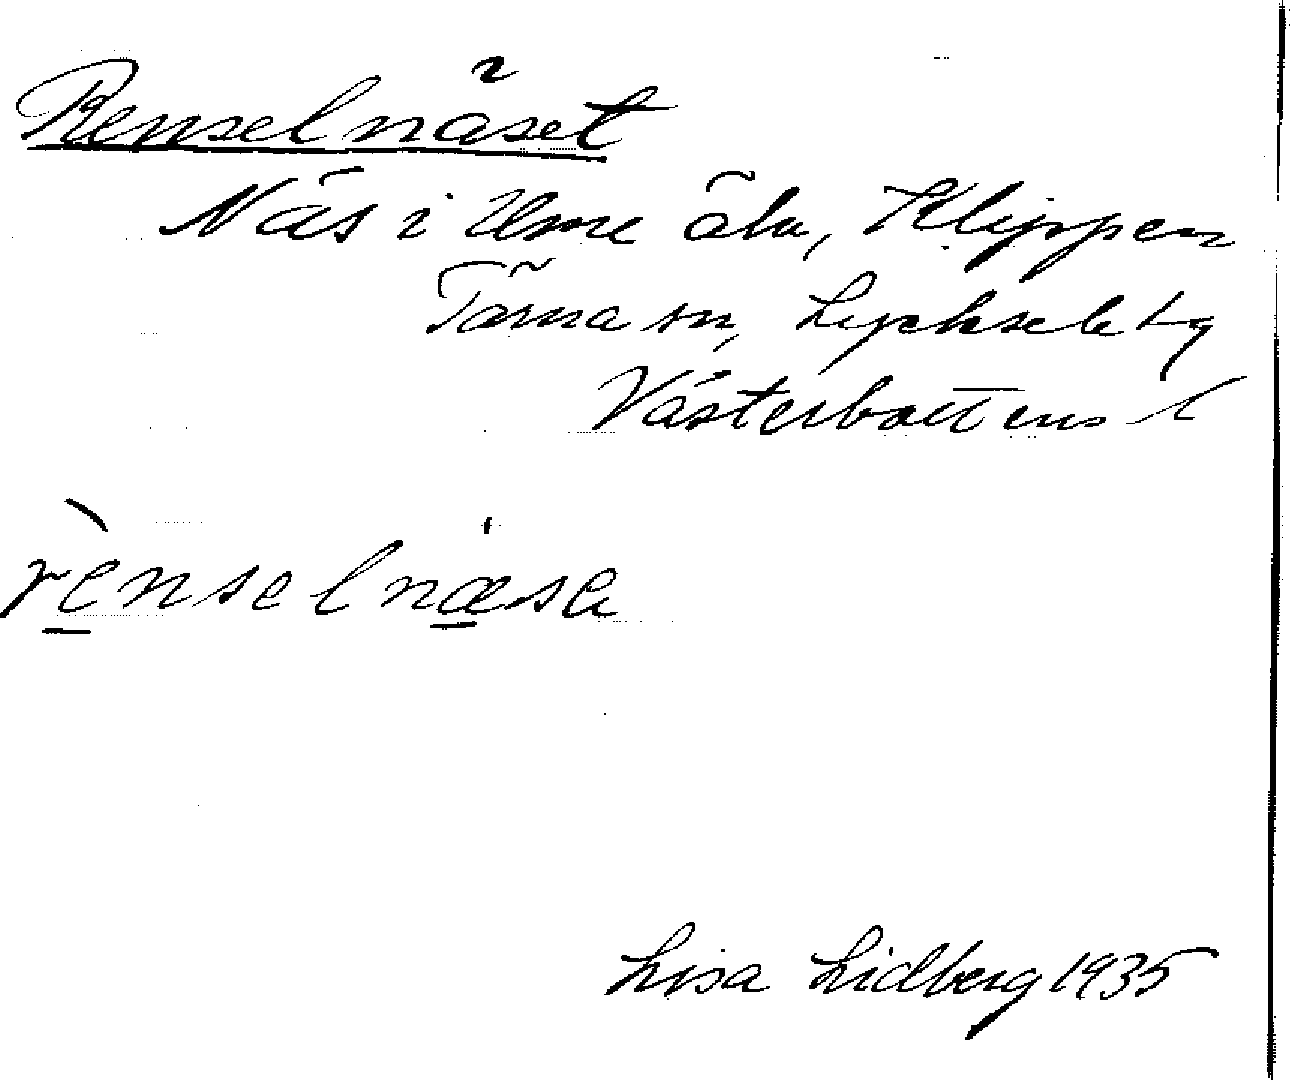 Renselnäset
Näs i Ume älv, Klippen
Tärna sn, Lycksele tg
Västerbottens l
rènselnǽsa
Lisa Lidberg 1935